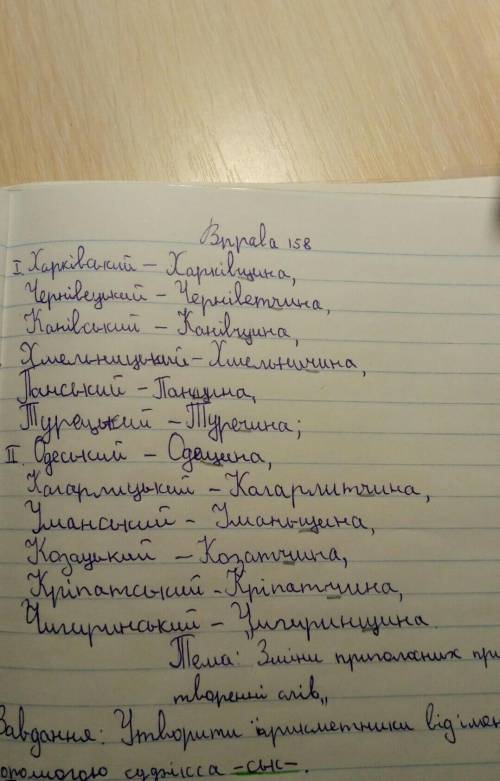 Вправа 158
I. Харківський – Харківщина,
Чернівецький – Черніветчина,
Канівський – Канівщина,
Хмельницький – Хмельниччина,
Панський – Панщина,
Турецький – Туречина;
II. Одеський – Одещина,
Кагарлицький – Кагарлитчина,
Уманський – Уманьщина,
Козацький – Козатчина,
Кріпатський – Кріпатчина,
Чигиринський – Чигиринщина.
Тема: Зміни приголосних при
творенні слів„
Завдання: Утворити прикметники від імен
допомогою суфікса -ськ-.